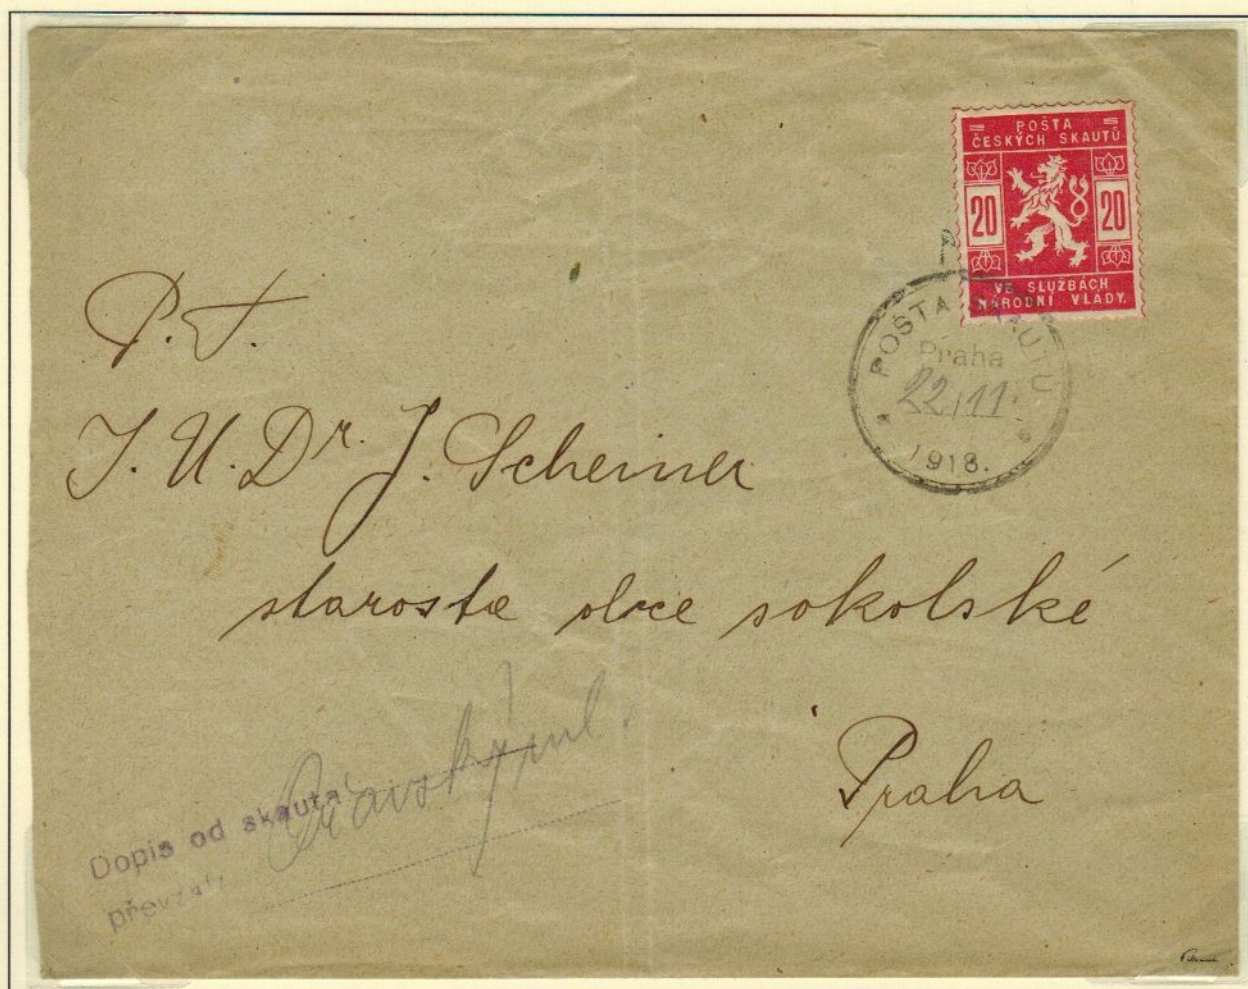 POŠTA
ČESKÝCH SKAUTŮ
20 20
VE SLUŽBÁCH
NÁRODNÍ VLÁDY.
POŠTA SKAUTŮ
Praha
22/11.
1918.
P. T.
J. U. Dr. J. Scheiner
starosta obce sokolské
Praha
Dopis od skauta
převzal: